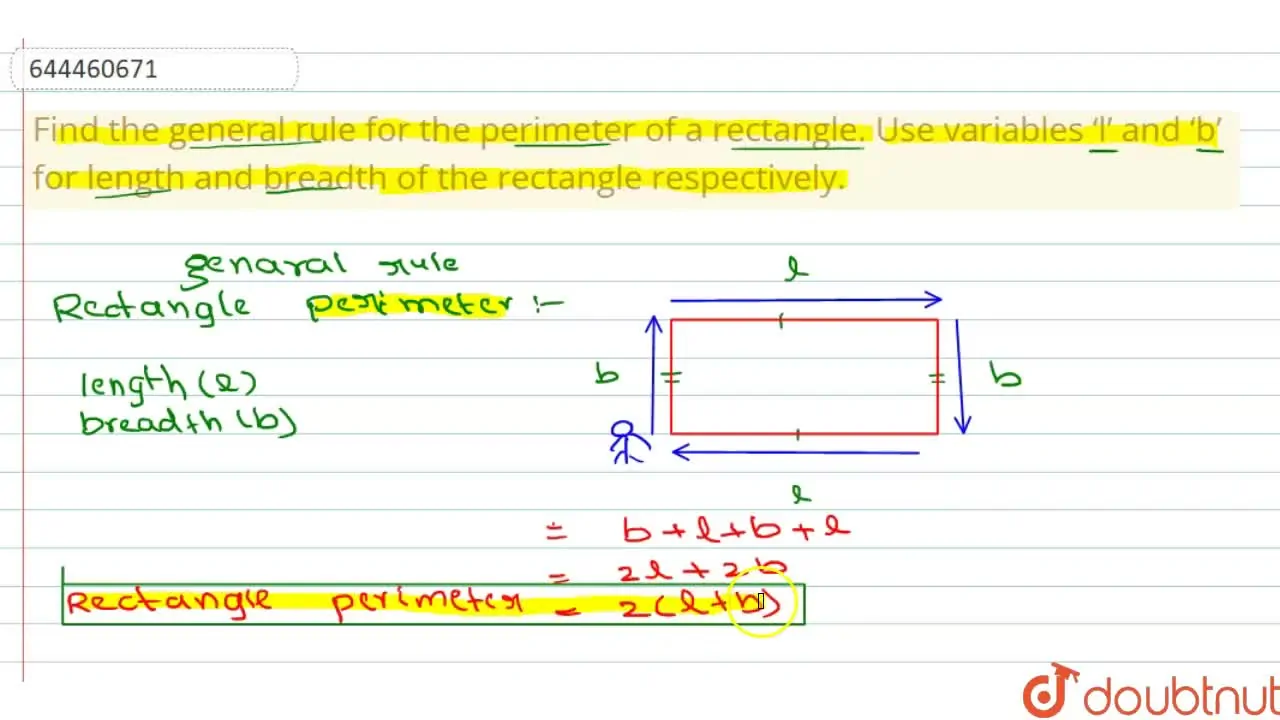 644460671
Find the general rule for the perimeter of a rectangle. Use variables ‘l’ and ‘b’
for length and breadth of the rectangle respectively.
genaral rule
Rectangle perimeter :-
l
length (l)
breadth (b)
b
b
l
= b + l + b + l
= 2l + 2b
Rectangle perimeter = 2(l+b)
doubtnut